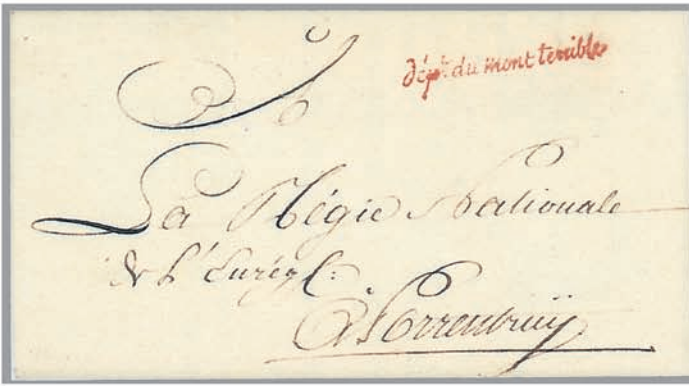 dépt. du mont terrible
A
La Régie Nationale
de L'Enrég.t:
A Porrentruÿ